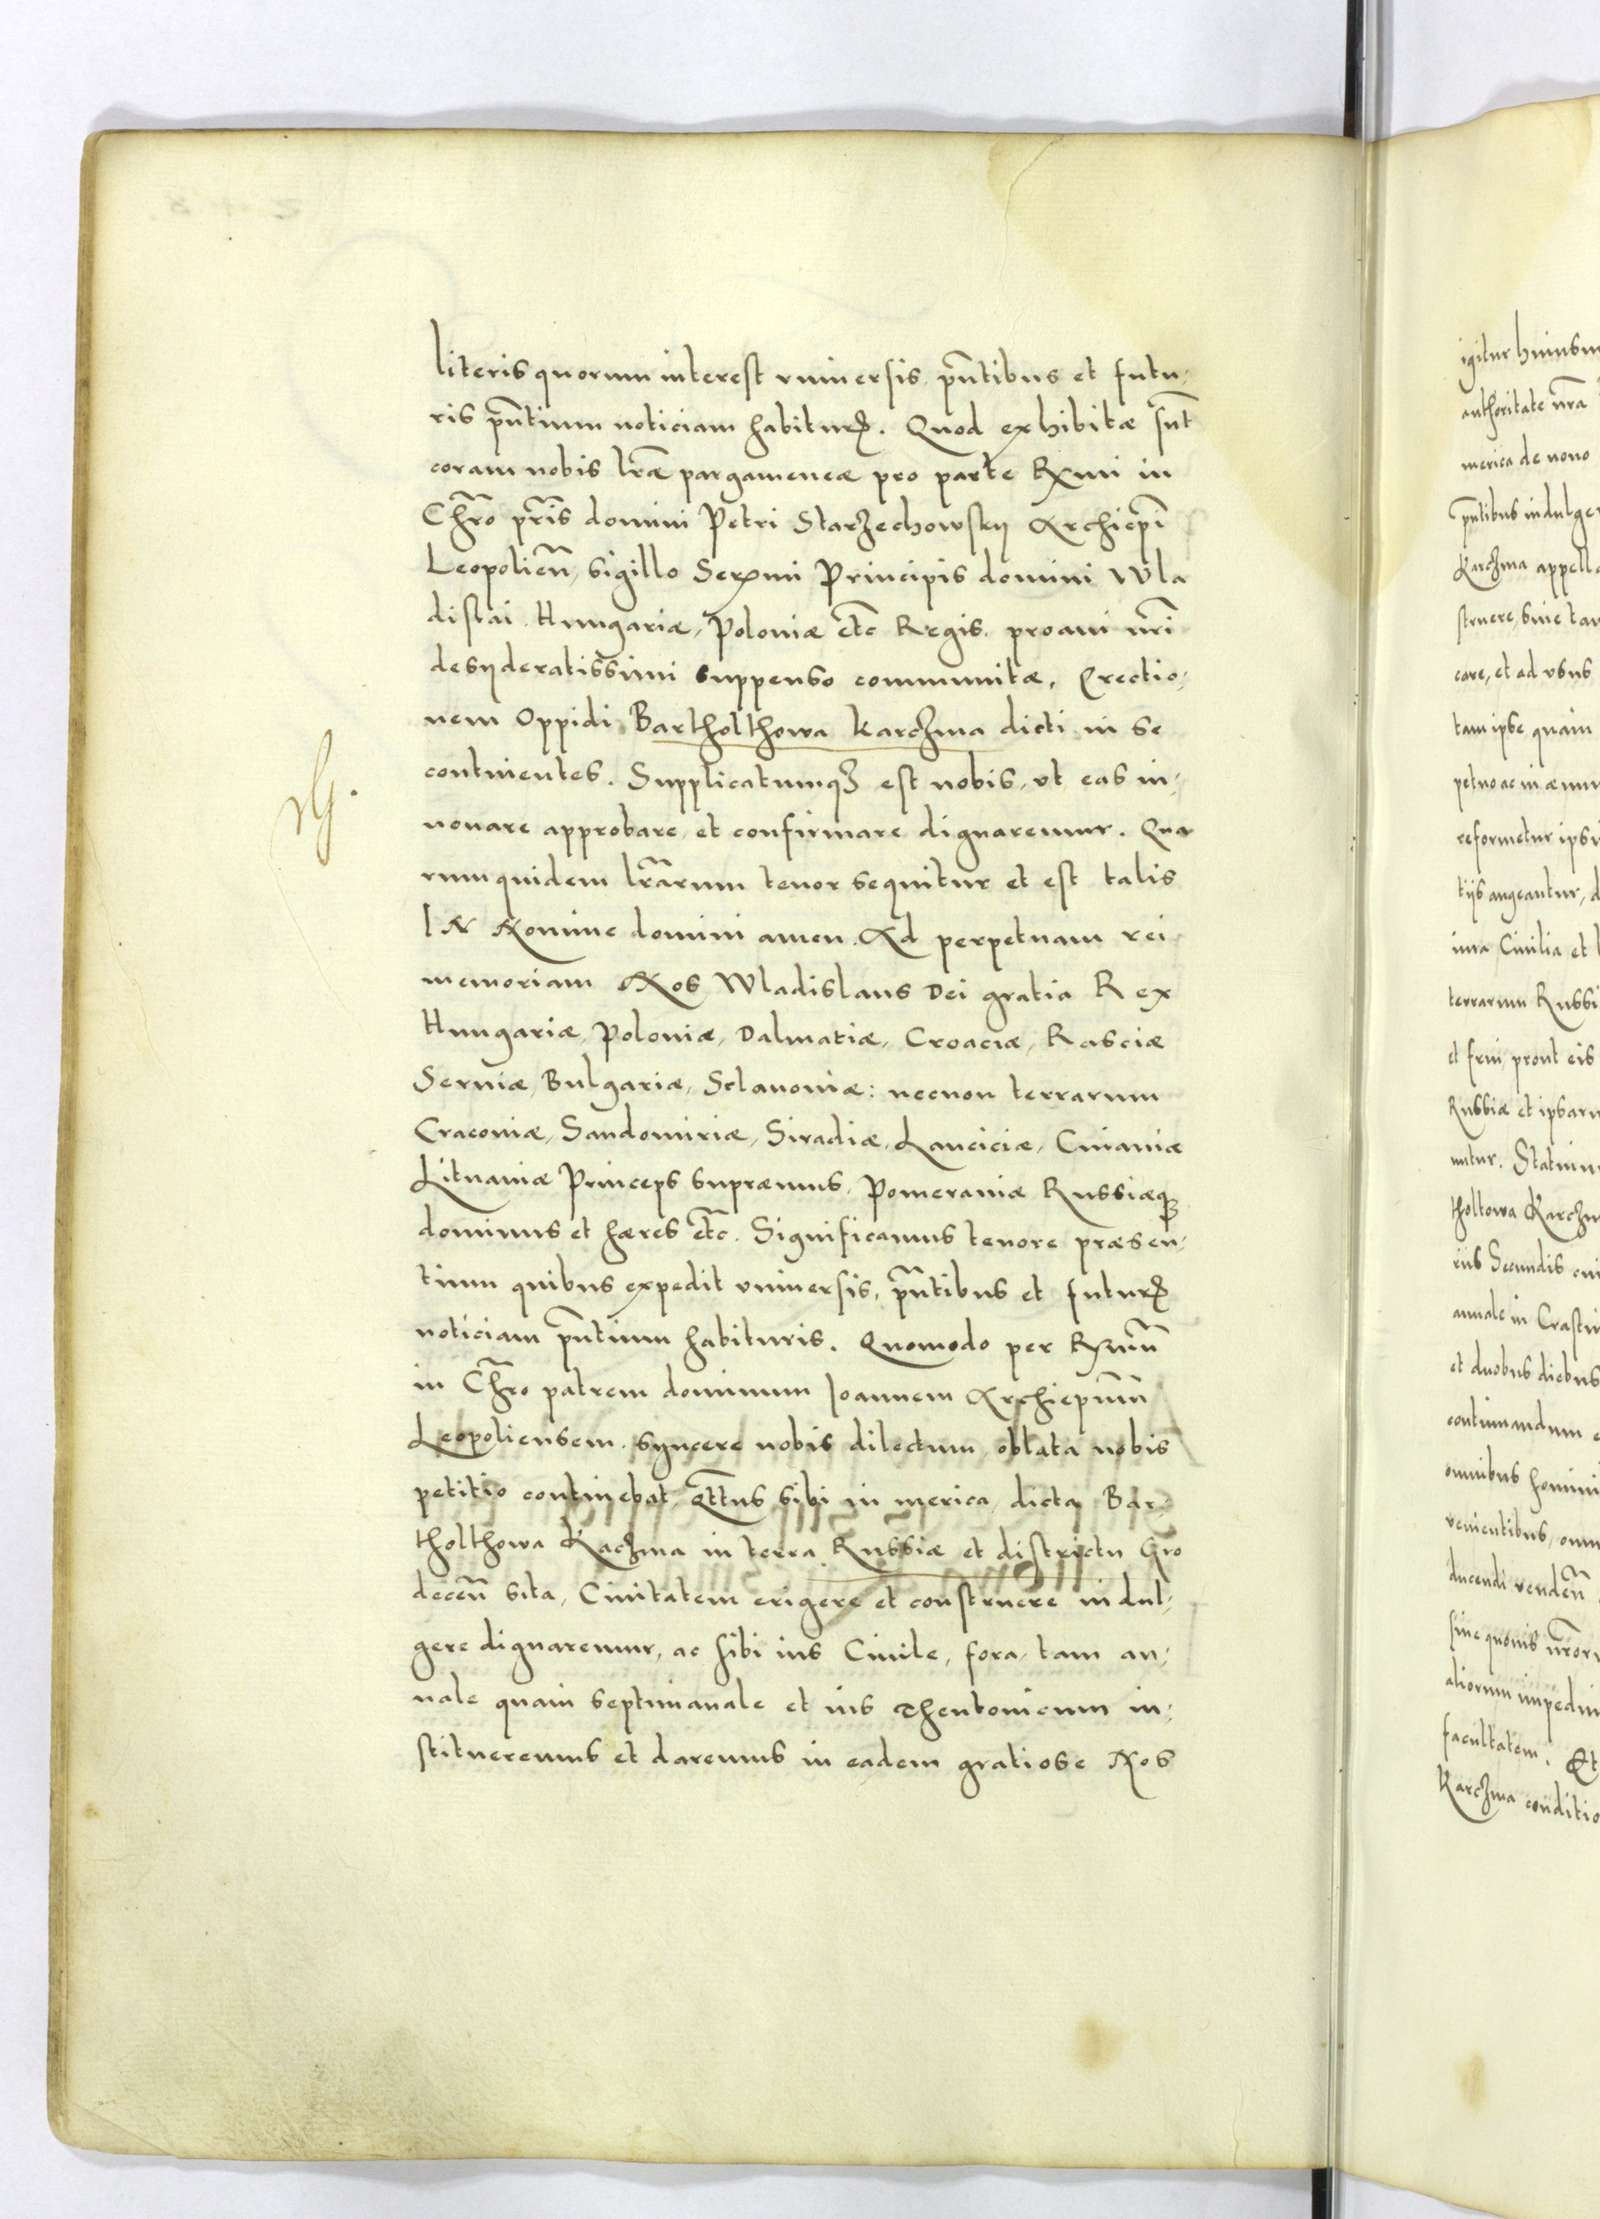 literis quorum interest vniuersis, pñtibus et futu-
ris pñtium noticiam habituris. Quod exhibitæ sũt
coram nobis lr̃æ pargameneæ pro parte Rx̃mi in
Chr̃o pr̃is domini Petri Starzechowsky Archiep̃i
Leopolieñ, sigillo Serx̃mi Principis domini Wla
dislai Hungariæ, Poloniæ etc̃ Regis, proaui nr̃i
desyderatissimi suppenso communitæ, Erectio-
nem Oppidi Bartholthowa karczma dicti in se
continentes. Supplicatumqꝫ est nobis, vt eas in-
nouare approbare, et confirmare dignaremur. Qua
rum quidem lr̃arum tenor sequitur et est talis
IN Nomine domini amen. Ad perpetuam rei
memoriam Nos Wladislaus Dei gratia Rex
Hungariæ, Poloniæ, Dalmatiæ, Croaciæ, Rasciæ
Seruiæ, Bulgariæ, Sclauoniæ: necnon terrarum
Cracouiæ, Sandomiriæ, Siradiæ, Lanciciæ, Cuiauiæ
Lituaniæ Princeps supræmus, Pomeraniæ Russiæqꝫ
dominus et hæres etc̃. Significamus tenore præsen-
tium quibus expedit vniuersis, pñtibus et futuris
noticiam pñtium habituris. Quomodo per Rx̃mũ
in Chr̃o patrem dominum Ioannem Archiep̃um
Leopoliensem, syncere nobis dilectum, oblata nobis
petitio continebat, q̃tenus sibi in merica, dicta Bar-
tholthowa Kaczma in terra Russiæ et districtu Gro
deceñ sita, Ciuitatem erigere et construere indul-
gere dignaremur, ac sibi ius Ciuile, fora, tam an-
nale quam septimanale et ius Theutonicum in-
stitueremus et daremus in eadem gratiose Nos
igitur huiusm
authoritate nr̃a
merica de nouo
pñtibus indulge
Kaczma appella
struere, siue tan
care, et ad vsus
tam ipse quam
petuo ac in æuum
reformetur ipsi
tijs augeantur, d
iura Ciuilia et l
terrarum Russi
et frui, prout eis
Russiæ et ipsaru
untur. Statuim
tholtowa Karczm
rijs Secundis cui
annale in Crastin
et duobus diebus
continuandum e
omnibus homini
venientibus, omn
ducendi vendeñ
siue quouis nr̃oru
aliorum impedim
facultatem. Et
Karczma conditio